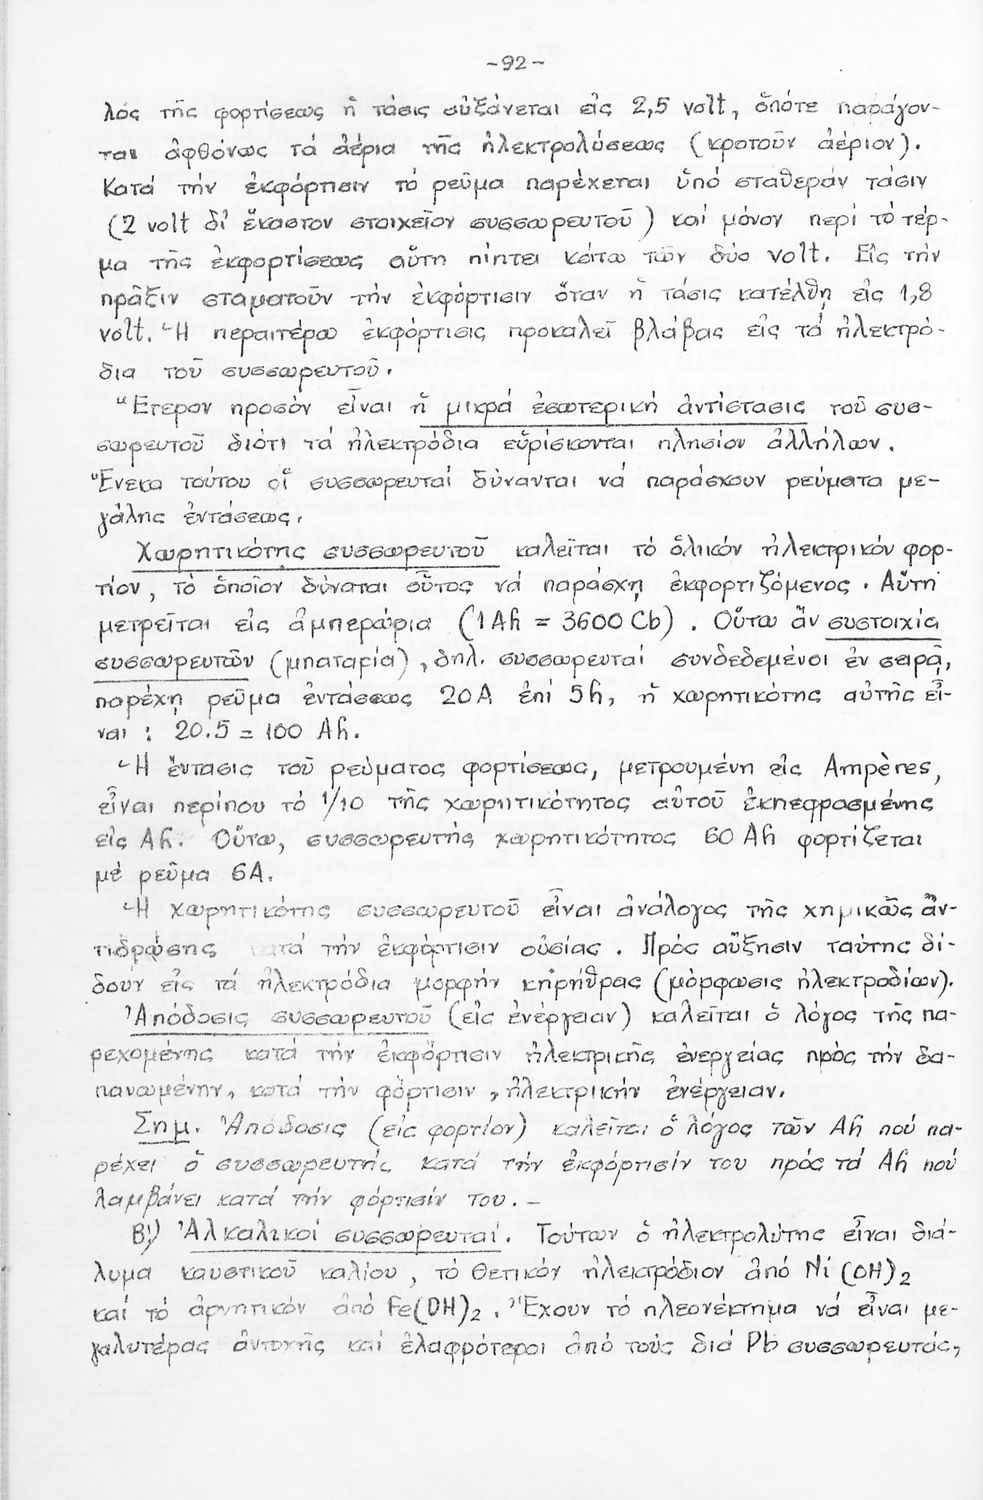 -92-
λος τῆς φορτίσεως ἡ τάσις αὐξάνεται εἰς 2,5 volt, ὁπότε παράγον-
ται ἀφθόνως τά ἀέρια τῆς ἠλεκτρολύσεως (κροτοῦν ἀέριον).
Κατά τήν ἐκφόρτισιν τό ρεῦμα παρέχεται ὑπό σταθεράν τάσιν
(2 volt δι' ἕκαστον στοιχεῖον συσσωρευτοῦ) καί μόνον περί τό τέρ-
μα τῆς ἐκφορτίσεως αὕτη πίπτει κάτω τῶν δύο volt. Εἰς τήν
πρᾶξιν σταματοῦν τήν ἐκφόρτισιν ὅταν ἡ τάσις κατέλθη εἰς 1,8
volt. Ἡ περαιτέρω ἐκφόρτισις προκαλεῖ βλάβας εἰς τά ἠλεκτρό-
δια τοῦ συσσωρευτοῦ.
Ἕτερον προσόν εἶναι ἡ μικρά ἐσωτερική ἀντίστασις τοῦ συσ-
σωρευτοῦ διότι τά ἠλεκτρόδια εὑρίσκονται πλησίον ἀλλήλων.
Ἕνεκα τούτου οἱ συσσωρευταί δύνανται νά παράσχουν ρεύματα με-
γάλης ἐντάσεως.
Χωρητικότης συσσωρευτοῦ καλεῖται τό ὁλικόν ἠλεκτρικόν φορ-
τίον, τό ὁποῖον δύναται οὗτος νά παράσχῃ ἐκφορτιζόμενος. Αὕτη
μετρεῖται εἰς ἀμπερώρια (1 Ah = 3600 Cb). Οὕτω ἄν συστοιχία
συσσωρευτῶν (μπαταρία), δηλ. συσσωρευταί συνδεδεμένοι ἐν σειρᾷ,
παρέχῃ ρεῦμα ἐντάσεως 20A ἐπί 5h, ἡ χωρητικότης αὐτῆς εἶ-
ναι : 20.5 = 100 Ah.
Ἡ ἔντασις τοῦ ρεύματος φορτίσεως, μετρουμένη εἰς Ampères,
εἶναι περίπου τό 1/10 τῆς χωρητικότητος αὐτοῦ ἐκπεφρασμένης
εἰς Ah. Οὕτω, συσσωρευτής χωρητικότητος 60 Ah φορτίζεται
μέ ρεῦμα 6A.
Ἡ χωρητικότης συσσωρευτοῦ εἶναι ἀνάλογος τῆς χημικῶς ἀν-
τιδρώσης κατά τήν ἐκφόρτισιν οὐσίας. Πρός αὔξησιν ταύτης δί-
δουν εἰς τά ἠλεκτρόδια μορφήν κηρήθρας (μόρφωσις ἠλεκτροδίων).
Ἀπόδοσις συσσωρευτοῦ (εἰς ἐνέργειαν) καλεῖται ὁ λόγος τῆς πα-
ρεχομένης κατά τήν ἐκφόρτισιν ἠλεκτρικῆς ἐνεργείας πρός τήν δα-
πανωμένην, κατά τήν φόρτισιν, ἠλεκτρικήν ἐνέργειαν.
Σημ. Ἀπόδοσις (εἰς φορτίον) καλεῖται ὁ λόγος τῶν Ah πού πα-
ρέχει ὁ συσσωρευτής κατά τήν ἐκφόρτισίν του πρός τά Ah πού
λαμβάνει κατά τήν φόρτισίν του. –
Β') Ἀλκαλικοί συσσωρευταί. Τούτων ὁ ἠλεκτρολύτης εἶναι διά-
λυμα καυστικοῦ καλίου, τό θετικόν ἠλεκτρόδιον ἀπό Ni(OH)2
καί τό ἀρνητικόν ἀπό Fe(OH)2. Ἔχουν τό πλεονέκτημα νά εἶναι με-
γαλυτέρας ἀντοχῆς καί ἐλαφρότεροι ἀπό τούς διά Pb συσσωρευτάς,